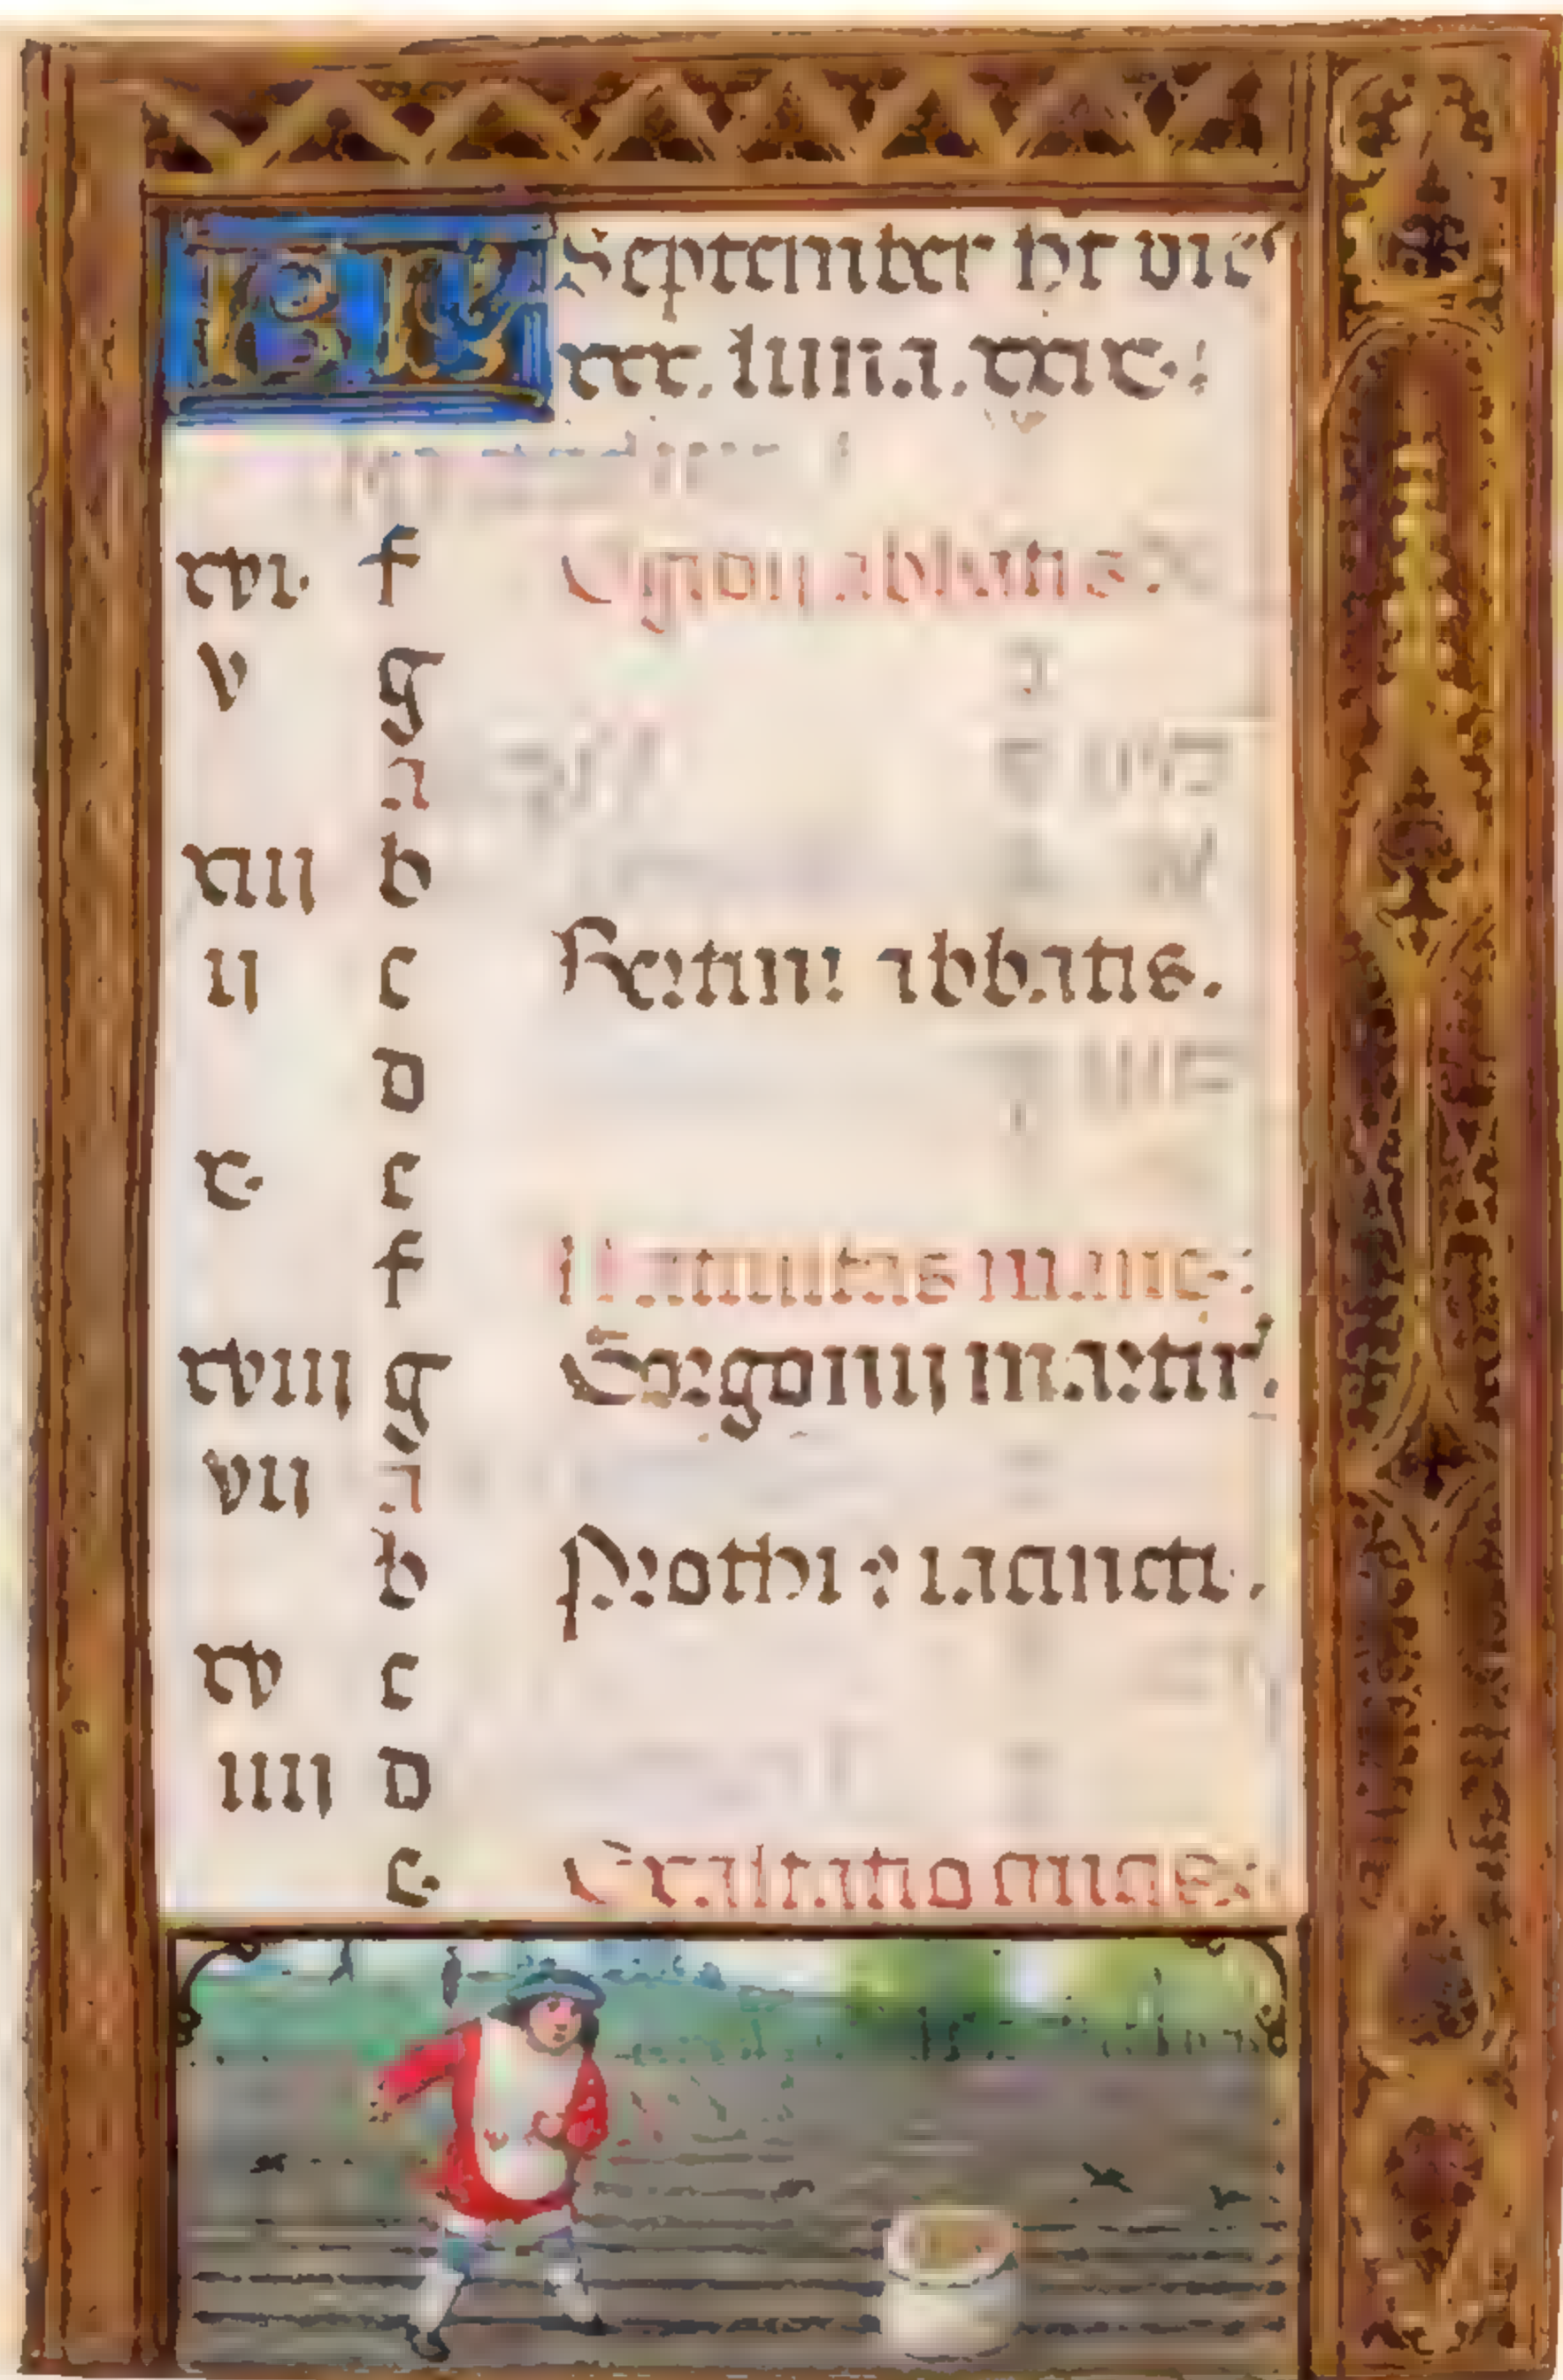 KL September ht dies
xxx. luna. xxix.
xvi. f Egidii abbatis.
v g
a
xiiii b
ii c Bertini abbatis.
d
x. e
f Natiuitas marie.
xviii g Gorgonij martir.
vii a
b Prothi et iacincti.
xv c
iiii d
e. Exaltatio crucis.